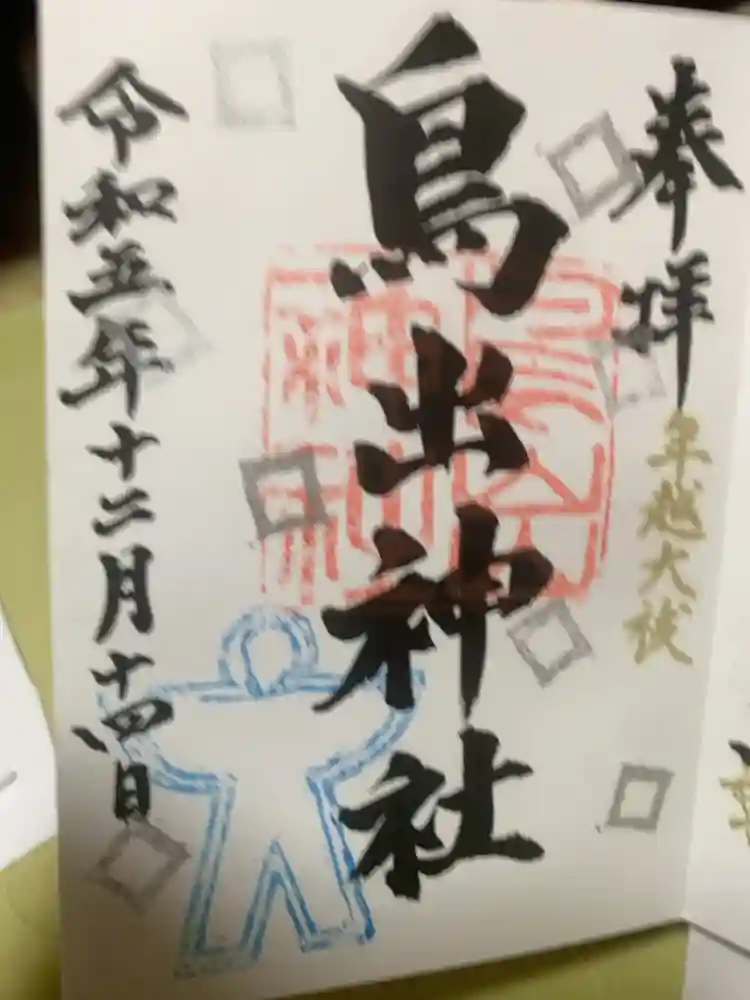 奉拝
年越大祓
鳥出神社
令和五年十二月十四日